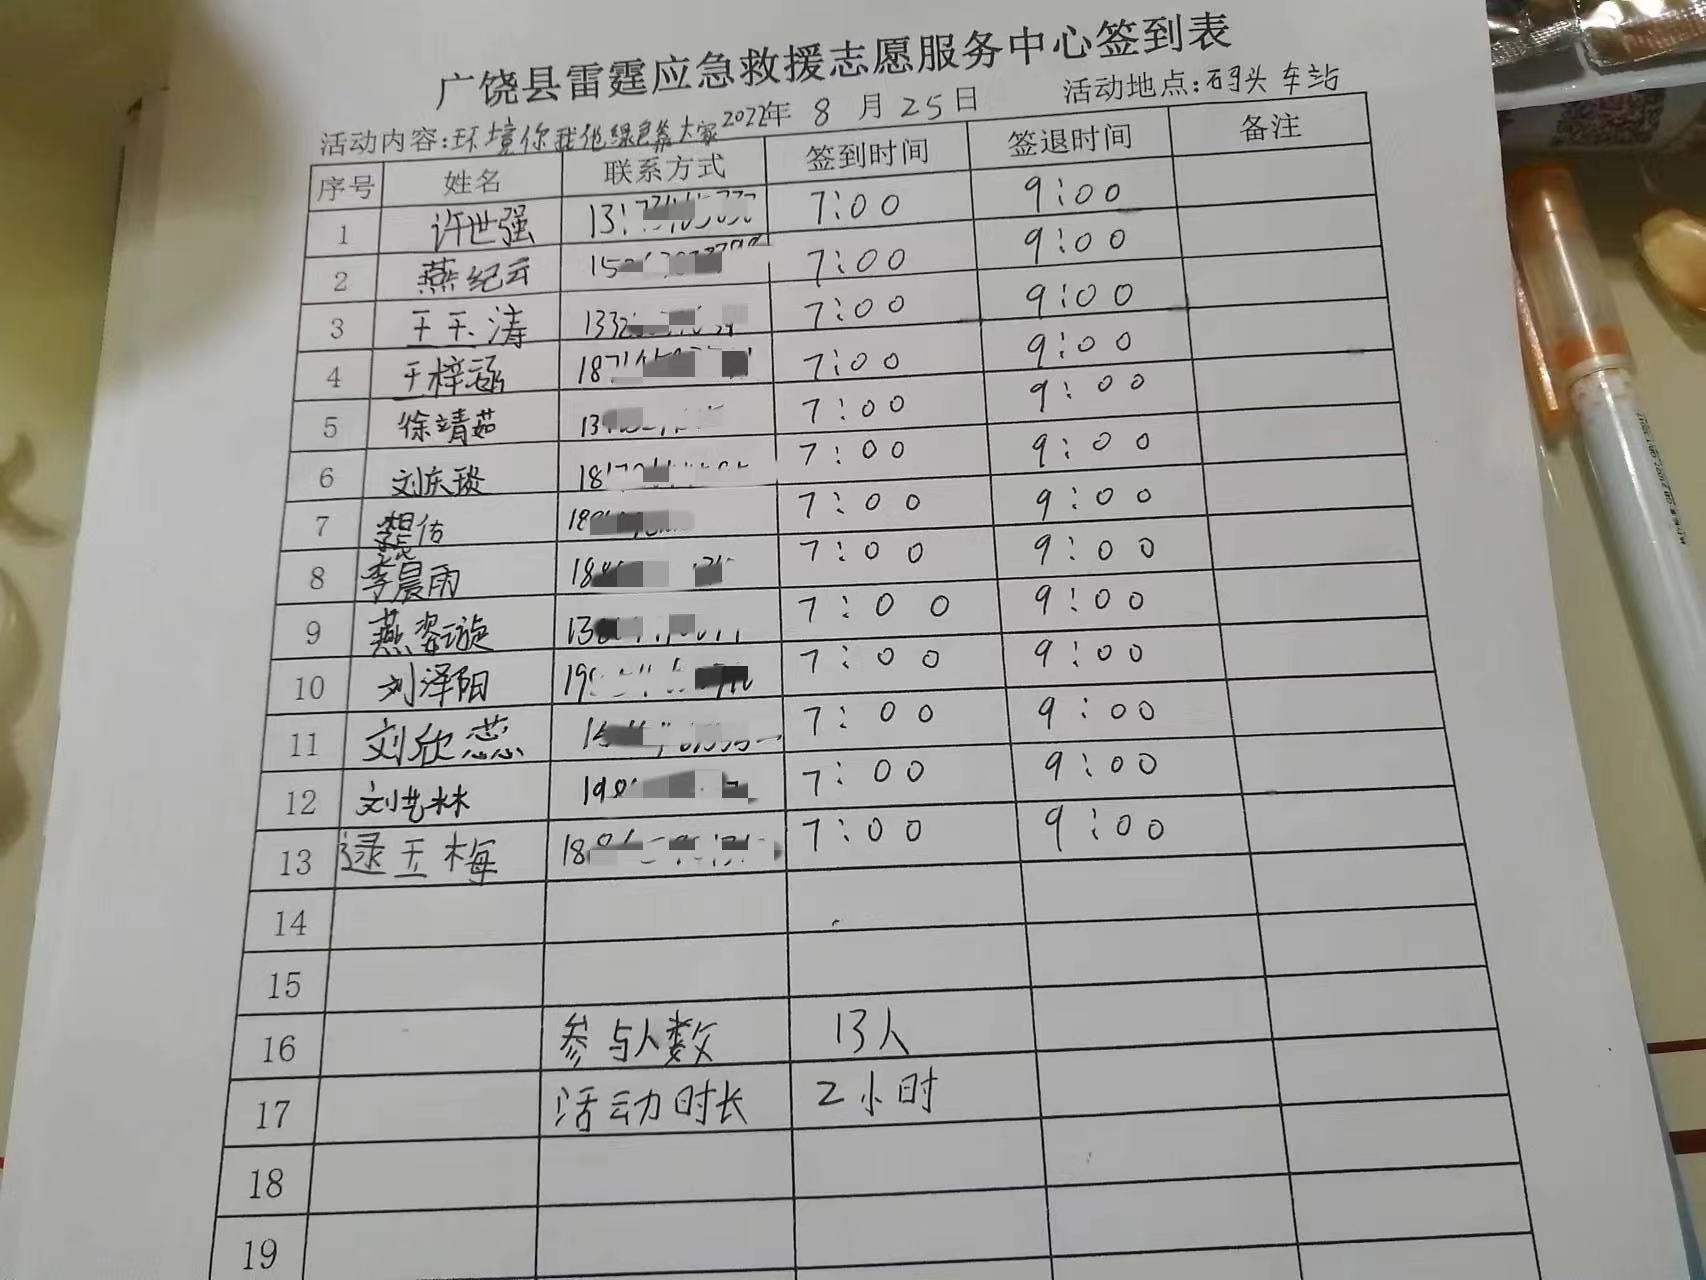 广饶县雷霆应急救援志愿服务中心签到表
活动内容:环境你我他绿色靠大家 2022年 8 月 25 日 活动地点:码头车站
序号 姓名 联系方式 签到时间 签退时间 备注
1 许世强 7:00 9:00
2 燕纪云 7:00 9:00
3 王玉涛 7:00 9:00
4 王梓涵 7:00 9:00
5 徐靖茹 7:00 9:00
6 刘庆琰 7:00 9:00
7 7:00 9:00
8 李晨雨 7:00 9:00
9 燕姿璇 7:00 9:00
10 刘泽阳 7:00 9:00
11 刘欣蕊 7:00 9:00
12 刘艺林 7:00 9:00
13 逯玉梅 7:00 9:00
14
15
16 参与人数 13人
17 活动时长 2小时
18
19